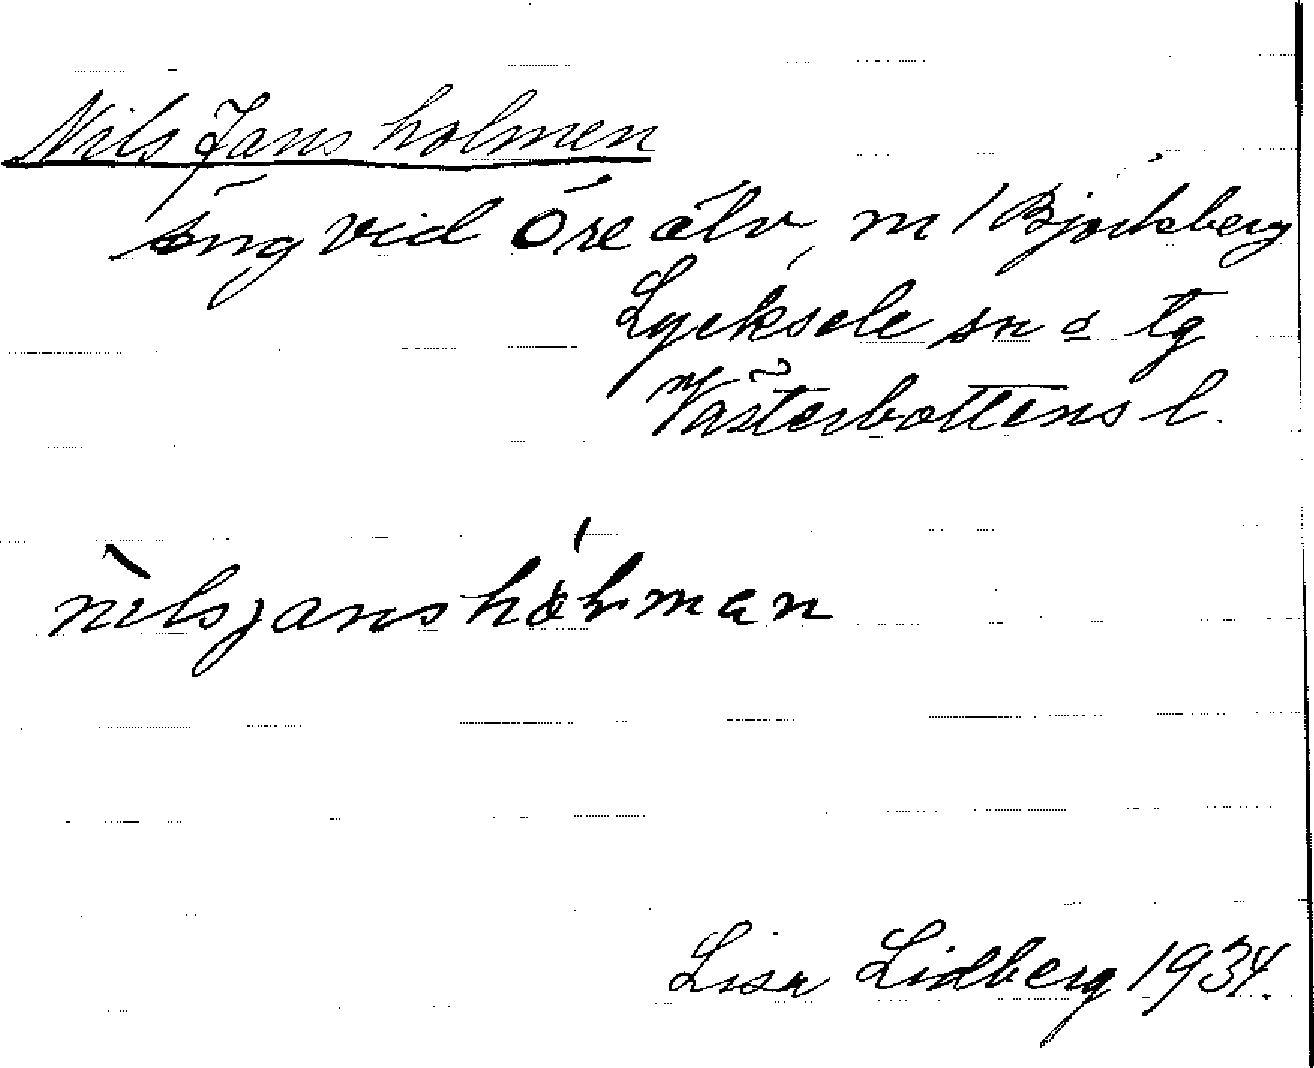 Nils Jans holmen
äng vid Öre älv, m / Björksberg
Lycksele sn o tg
Västerbottens l.
nilsjanshólman
Lisa Lidberg 1934.